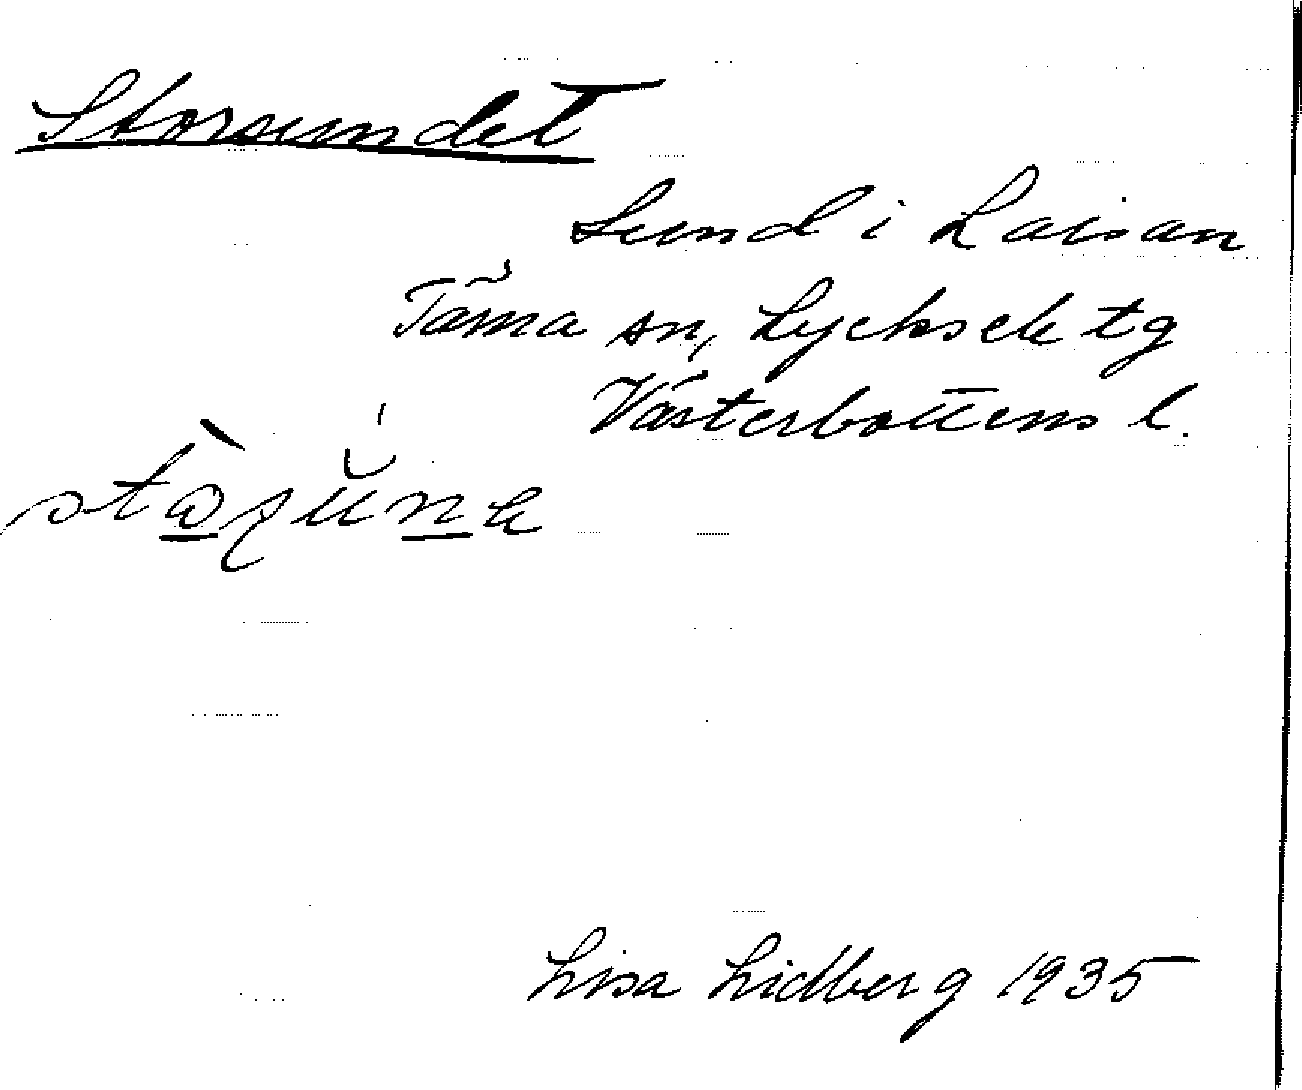 Storsundet
Sund i Laisan
Tärna sn, Lycksele tg
Västerbottens l.
Lisa Lidberg 1935